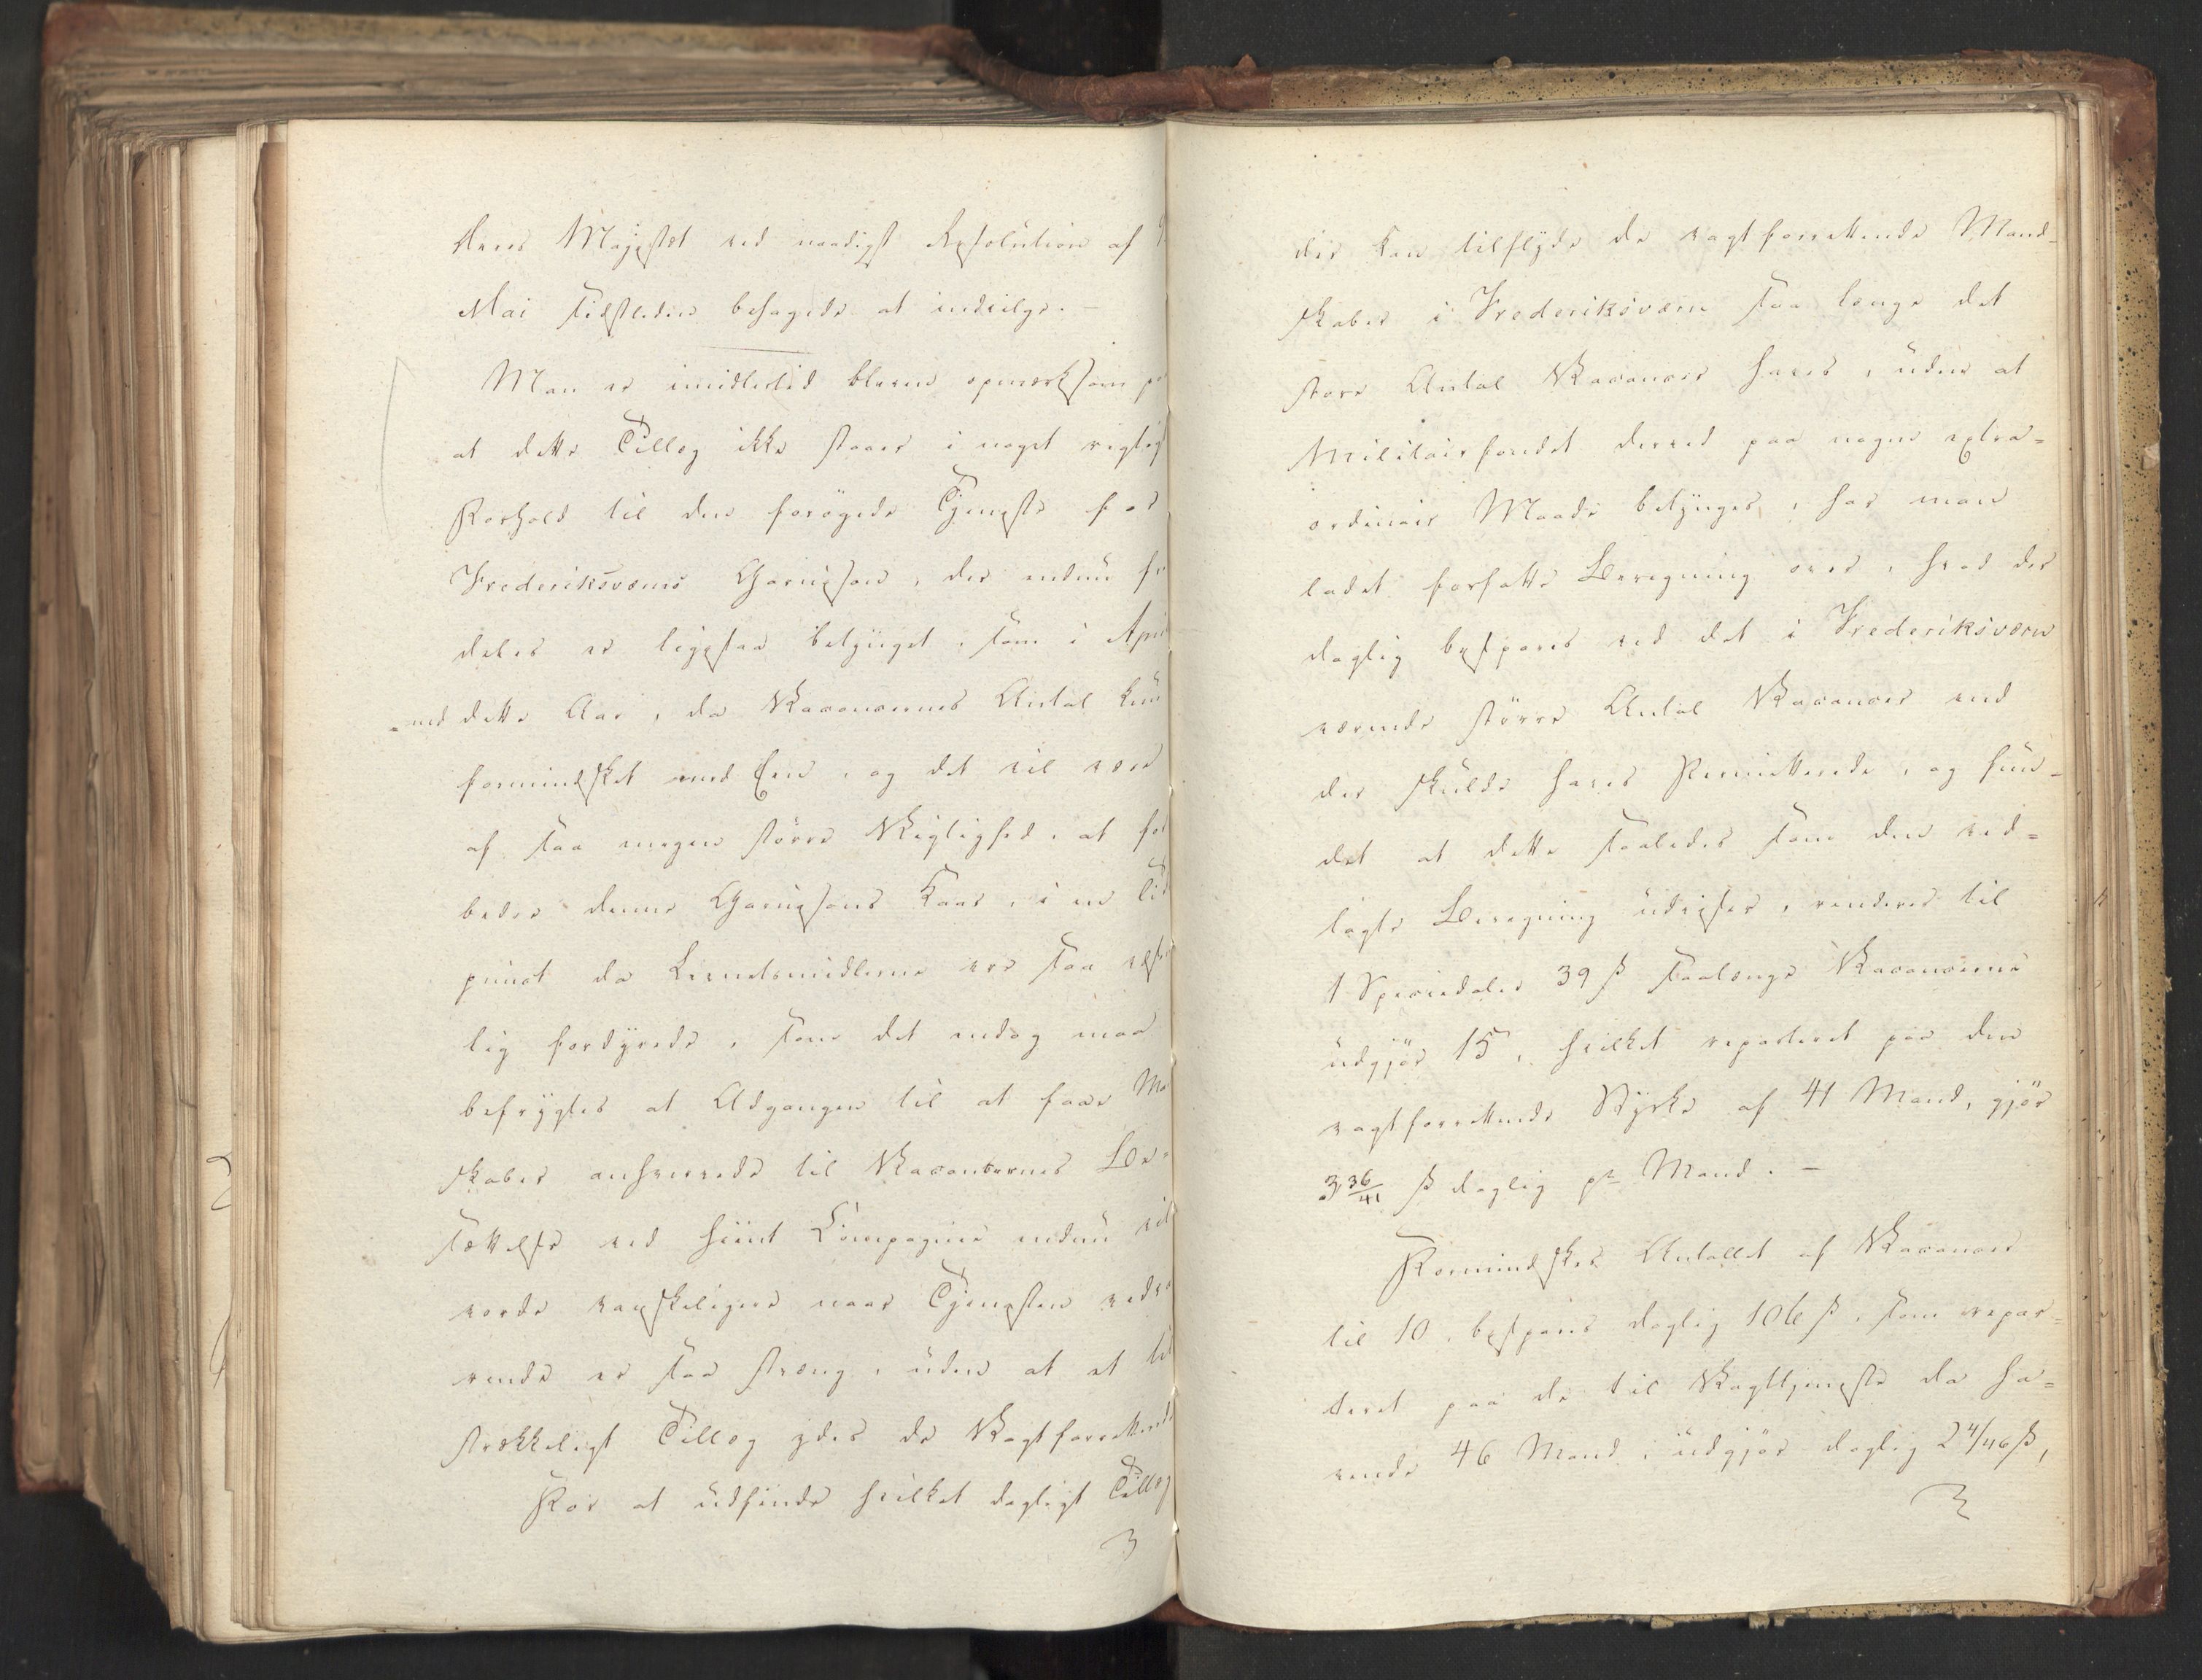 Deres Majestet ved naadigst Resolution af
Mai sidstleden behagede at indvilge. —
Man er imidlertid bleven opmerksom
at dette Tillæg ikke staaer i noget rigtigt
Forhold til den forøgede Tjeneste for
Frederiksværns Garnison, der endnu
deles er ligesaa betynget, som i April
dette Aar, da Vacancernes Antal kun
formindsket med Een, og det vil være
af saa megen større Vigtighed, at for
bedre denne Garnisons Kaar, i en Tids
punct da Levnetsmidlerne ere saa
lig fordyrede, som det endog maa
befrygtes at Adgangen til at faae
skaber anhvervede til Vacancernes Be-
sættelse ved hiint Compagnie endnu vil
vorde vanskeligere naar Tjenesten vedva
rende er saa streng, uden at et til
strækkeligt Tillæg ydes de Vagtforrettende
For at udfinde hvilket dagligt Tillæg
der kan tilflyde de vagtforrettende Mand-
skaber i Frederiksværn saa længe det
store Antal Vacancer haves, uden at
Militairfondet derved paa nogen extra-
ordinair Maade betynges, har man
ladet forfatte Beregning over, hvad der
daglig bespares ved det i Frederiksværn
værende større Antal Vacancer end
der skulde haves Permitterede, og fun-
det at dette saaledes som den ved-
lagte Beregning udviser, renderer til
1 Speciedaler 39 ß saalænge Vacancerne
udgjør 15, hvilket reparteret paa den
vagtforrettende Styrke af 41 Mand, gjør
3 36/41 ß daglig pr Mand. —
Formindskes Antallet af Vacancer
til 10, bespares daglig 106 ß, som repar-
teret paa de til Vagttjeneste da ha-
vende 46 Mand, udgjør daglig 2 4/46 ß,